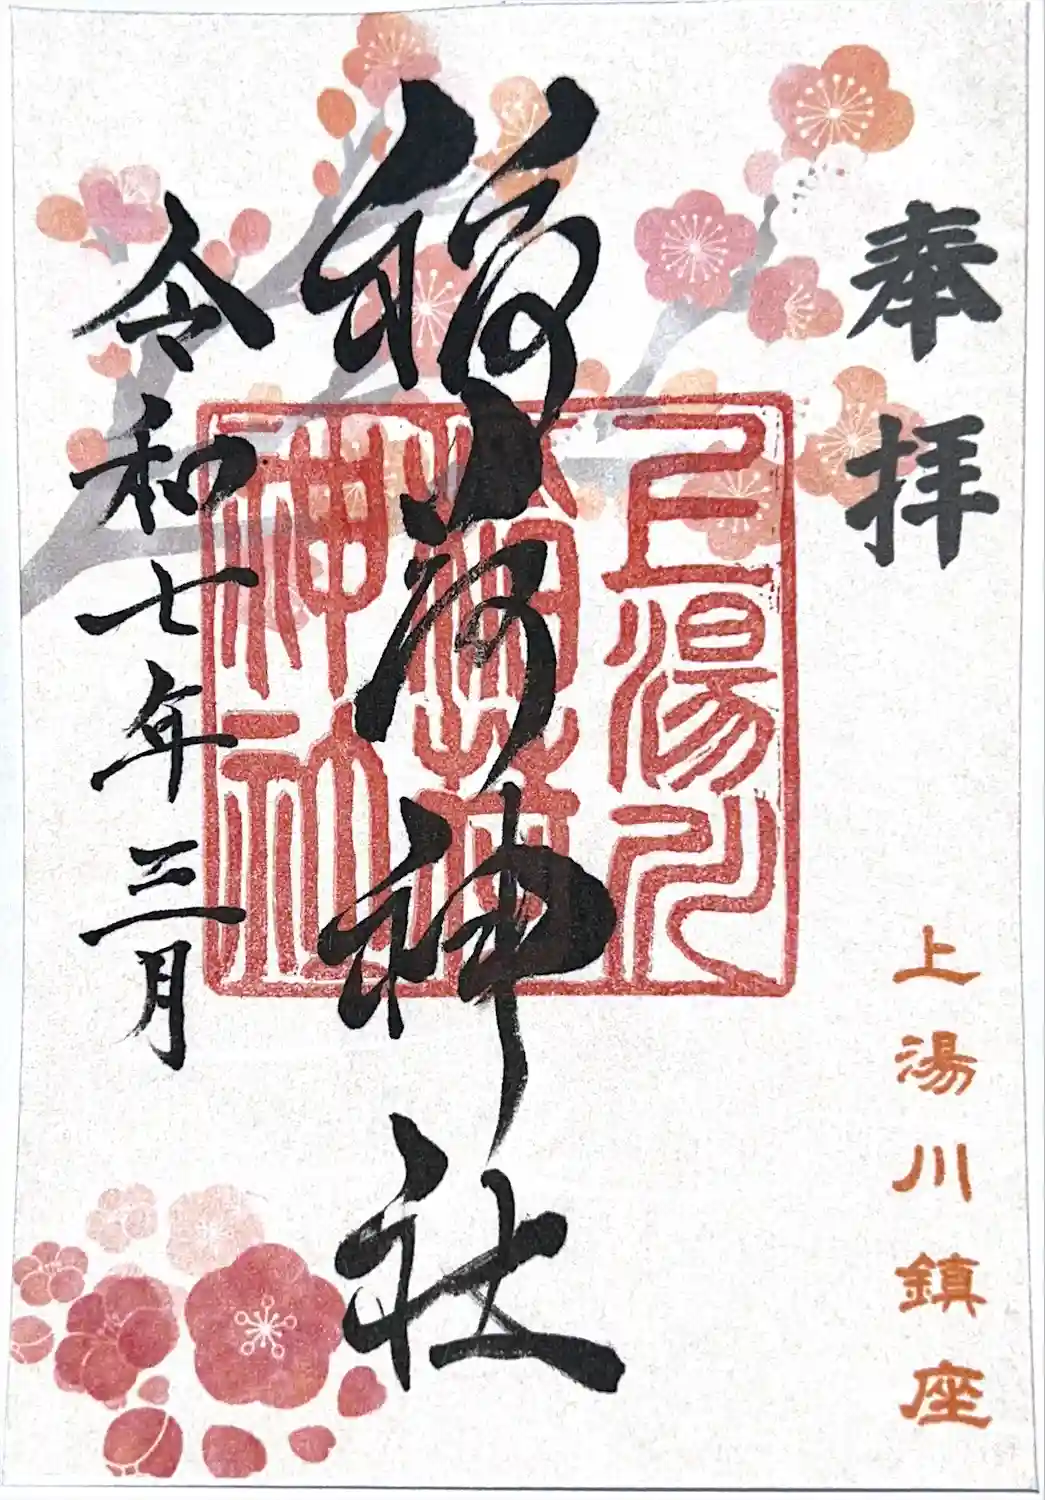 奉拝
上湯川鎮座
稲荷神社
上湯川
稲荷
神社
令和七年三月